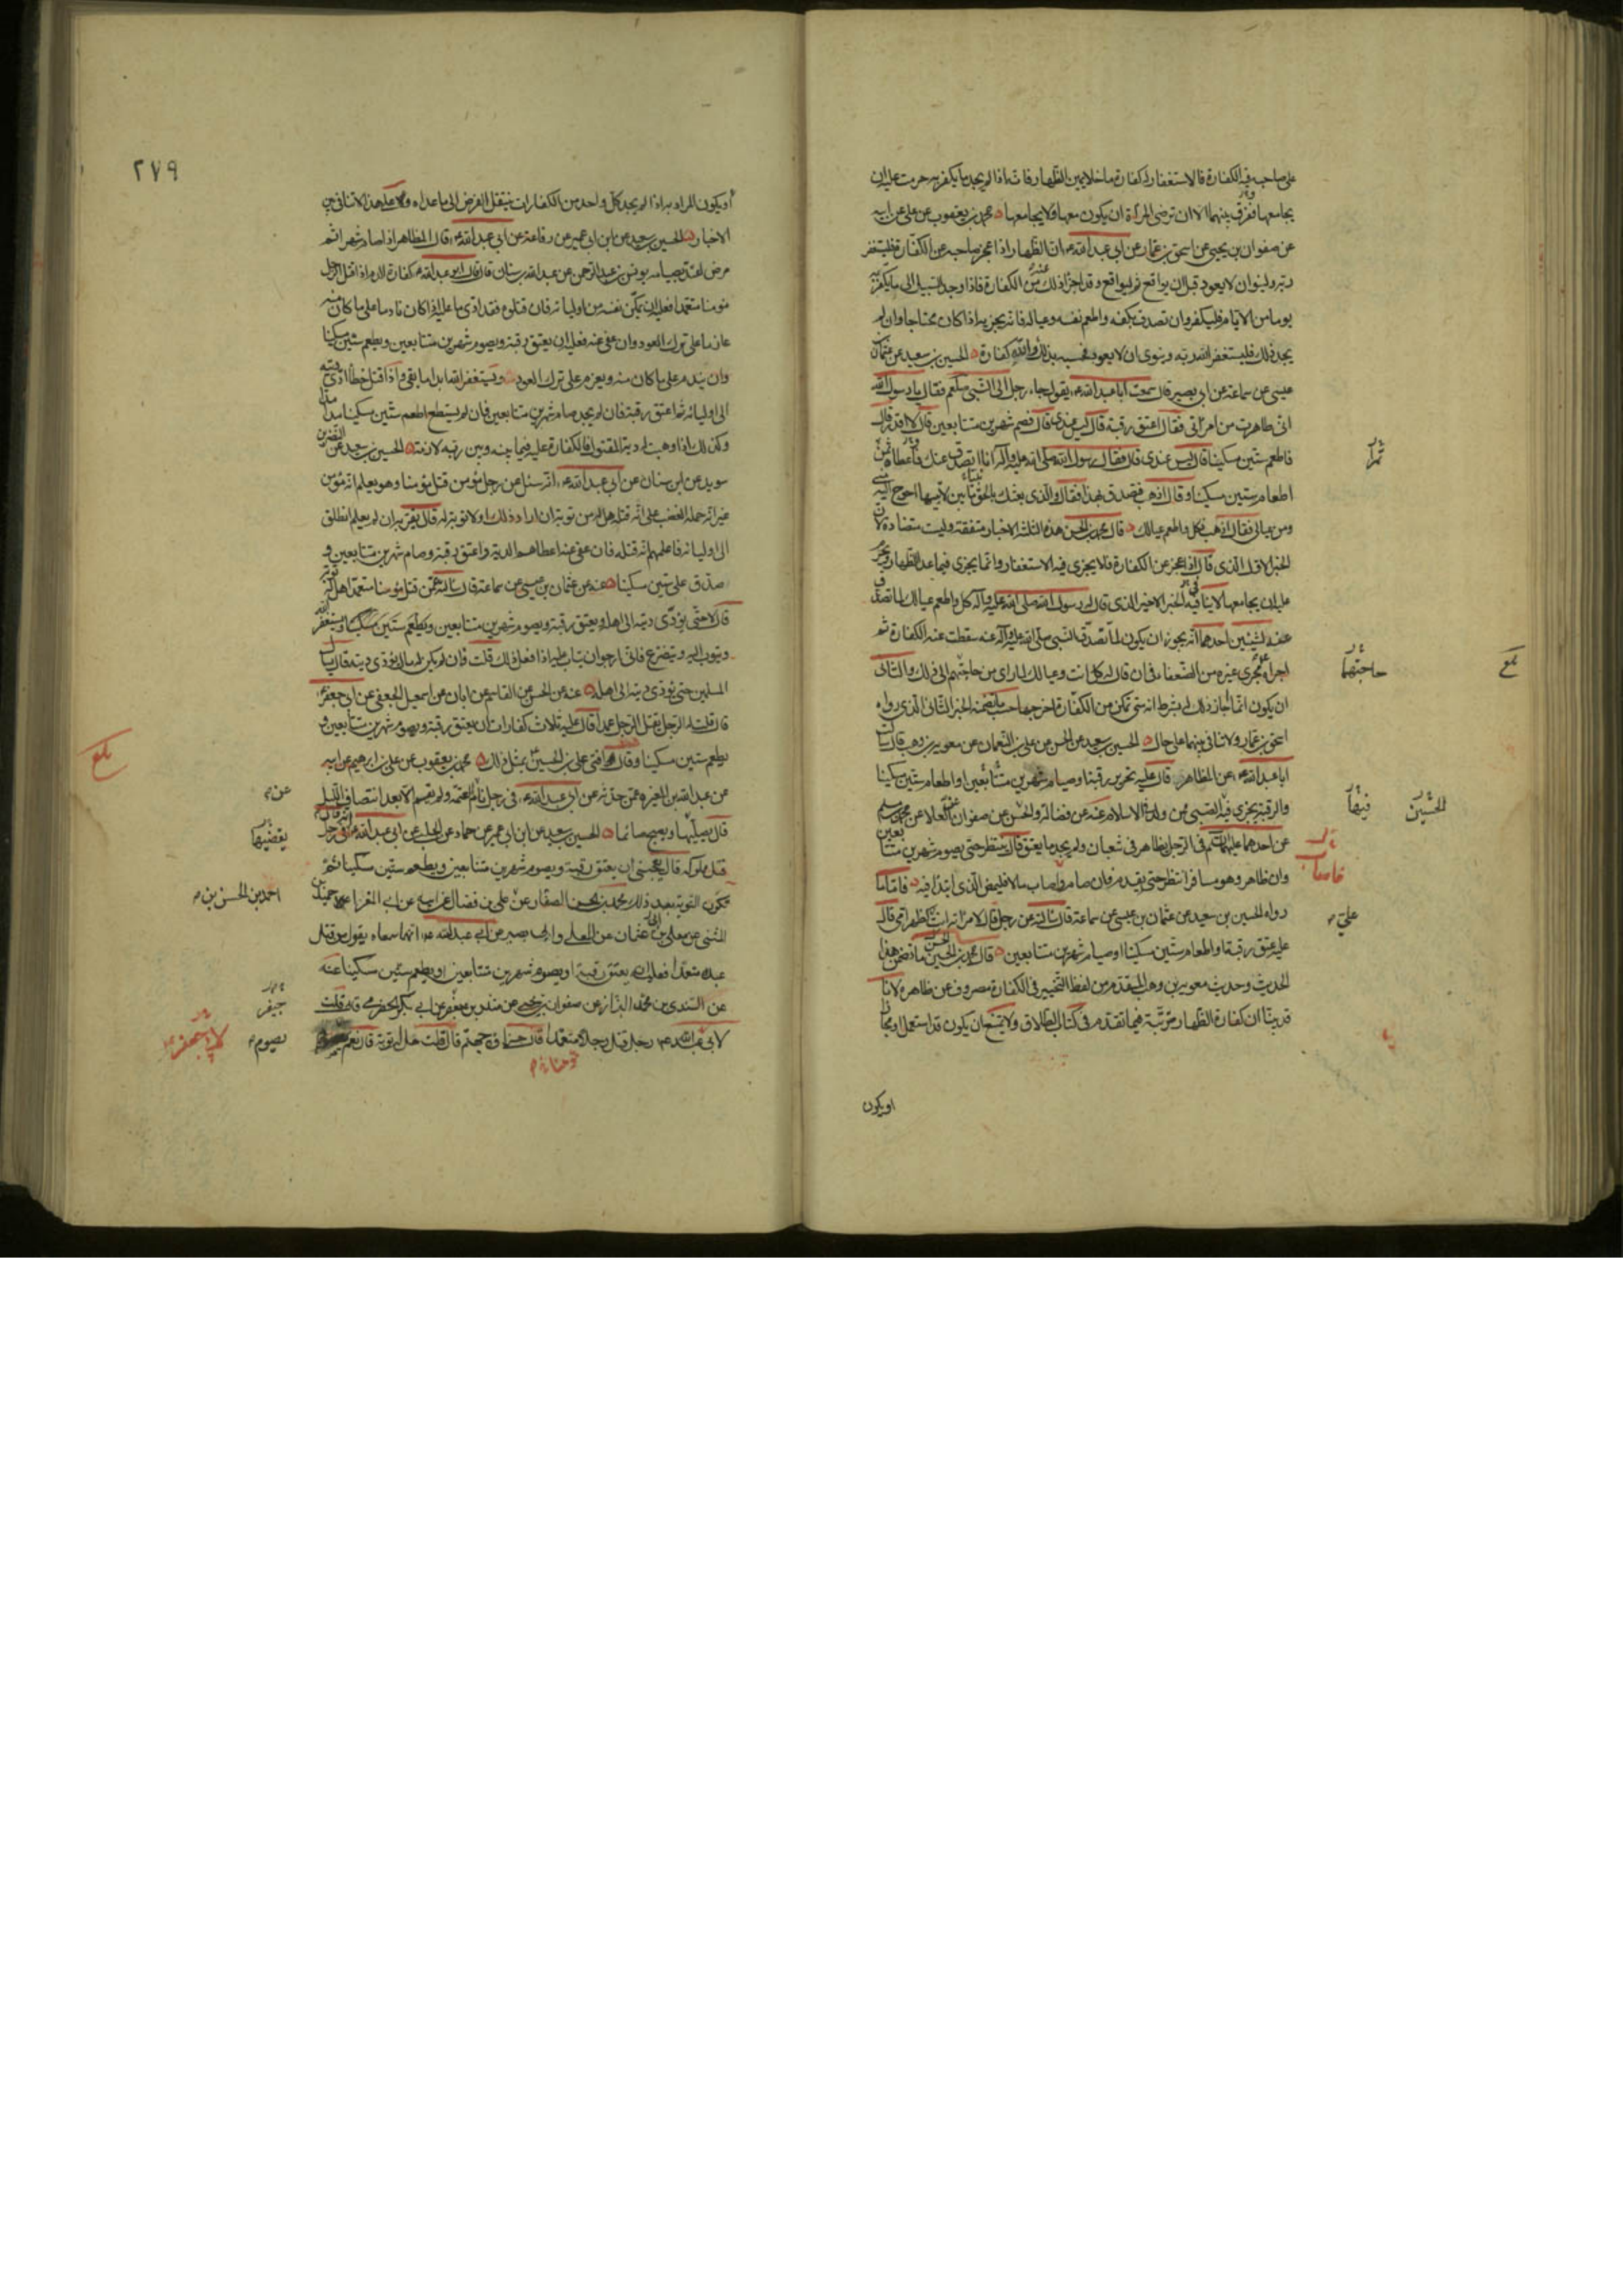 على صاحبه فيه الكفارة فالاستغفار له كفارة ما خلا يمين الظهار فانه اذا لم يجد ما يكفر به حرمت عليه ان
يجامعها وفرق بينهما الا ان ترضى المرأة ان يكون معها ولا يجامعها محمد بن يعقوب عن علي عن ابيه
عن صفوان بن يحيى عن اسحق بن عمار عن ابي عبد الله ع ان الظهار اذا عجز صاحبه عن الكفارة فليستغفر
ربه ولينو ان لا يعود قبل ان يواقع ثم ليواقع وقد اجزأ ذلك عنه من الكفارة فاذا وجد السبيل الى ما يكفر به
يوما من الايام فليكفر وان تصدق بكفه واطعم نفسه وعياله فانه يجزيه اذا كان محتاجا وان لم
يجد ذلك فليستغفر الله ربه وينوي ان لا يعود فحسبه بذلك والله كفارة الحسين بن سعيد عن عثمان بن
عيسى عن سماعة عن ابي بصير قال سمعت ابا عبد الله ع يقول جاء رجل الى النبي صلعم فقال يا رسول الله
اني ظاهرت من امرأتي فقال اعتق رقبة قال ليس عندي قال فصم شهرين متتابعين قال لا اقدر قال
فاطعم ستين مسكينا قال ليس عندي قال فقال رسول الله صلى الله عليه وآله انا اتصدق عنك فاعطاه ثمن
اطعام ستين مسكينا وقال اذهب فتصدق بهذا فقال والذي بعثك بالحق نبيا ما بين لابتيها احوج اليه مني
ومن عيالي فقال اذهب فكل واطعم عيالك قال محمد بن الحسن هذه الثلثة الاخبار متفقة وليست متضادة لان
الخبر الاول الذي قال اذا عجز عن الكفارة فلا يجزي فيه الاستغفار وانما يجزي فيما عدا الظهار ويحرم
عليه ان يجامعها لا ينافيه الخبر الاخير الذي قال له رسول الله صلى الله عليه وآله كل واطعم عيالك لما تصدق
عنه لشيئين احدهما انه يجوز ان يكون لما تصدق النبي صلى الله عليه وآله عنه سقطت عنه الكفارة ثم
اجراه مجرى غيره من الضعفاء في ان قال له كل انت وعيالك لما راى من حاجتهم الى ذلك والثاني
ان يكون انما جاز ذلك له بشرط انه متى تمكن من الكفارة اخرجها حسب ما تضمنه الخبر الثاني الذي رواه
اسحق بن عمار ولا تنافي بينهما على حال الحسين بن سعيد عن الحسن عن علي بن النعمان عن معوية بن وهب قال سألت
ابا عبد الله ع عن المظاهر قال عليه تحرير رقبة او صيام شهرين متتابعين او اطعام ستين مسكينا
والرقبة يجزي فيه الصبي ممن ولد في الاسلام عنه عن فضالة والحسن عن صفوان عن العلا عن محمد بن مسلم
عن احدهما عليهما السلم في الرجل يظاهر في شعبان ولم يجد ما يعتق قال ينتظر حتى يصوم شهرين متتابعين
وان ظاهر وهو مسافر انتظر حتى يقدم فان صام واصاب مالا فليمض الذي ابتدأ فيه فاما ما
رواه الحسين بن سعيد عن عثمان بن عيسى عن سماعة قال سألته عن رجل قال لامرأته انت علي كظهر امي قال
عليه عتق رقبة او اطعام ستين مسكينا او صيام شهرين متتابعين قال محمد بن الحسن ما تضمن هذا
الحديث وحديث معوية بن وهب المتقدم من لفظ التخيير في الكفارة مصروف عن ظاهره لانا
قد بينا ان كفارة الظهار مرتبة فيما تقدم في كتاب الطلاق ولا يمتنع ان يكون قد استعمل او مجازا
او يكون
ثمرا
حاجتهما
بلغ
الحسين
فيها
فاصاب
علي
٢٧٩
أو يكون المراد به اذا لم يجد كل واحد من الكفارات ينتقل الفرض الى ما عداه وعلى هذا لا تنافي بين
الاخبار الحسين بن سعيد عن ابن ابي عمير عن رفاعة عن ابي عبد الله ع قال المظاهر اذا صام شهرا ثم
مرض اعتد بصيامه يونس بن عبد الرحمن عن عبد الله بن سنان قال قال ابو عبد الله ع كفارة الدم اذا قتل الرجل
مؤمنا متعمدا فعليه ان يمكن نفسه من اوليائه فان قتلوه فقد ادى ما عليه اذا كان نادما على ما كان منه
عازما على ترك العود وان عفى عنه فعليه ان يعتق رقبة ويصوم شهرين متتابعين ويطعم ستين مسكينا
وان يندم على ما كان منه ويعزم على ترك العود ويستغفر الله ابدا ما بقي واذا قتل خطأ ادى ديته
الى اوليائه ثم اعتق رقبة فان لم يجد صام شهرين متتابعين فان لم يستطع اطعم ستين مسكينا مدا مدا
وكذلك اذا وهبت له دية المقتول فالكفارة عليه فيما بينه وبين ربه لازمة الحسين بن سعيد عن النضر بن
سويد عن ابن سنان عن ابي عبد الله ع انه سئل عن رجل مؤمن قتل مؤمنا وهو يعلم انه مؤمن
غير انه حمله الغضب على انه قتله هل له من توبة ان اراد ذلك او لا توبة له قال يقر به ان لم يعلم انطلق
الى اوليائه فاعلمهم انه قتله فان عفي عنه اعطاهم الدية واعتق رقبة وصام شهرين متتابعين و
صدق على ستين مسكينا عنه عن عثمان بن عيسى عن سماعة قال سألته عمن قتل مؤمنا متعمدا هل له توبة
قال لا حتى يؤدي ديته الى اهله ويعتق رقبة ويصوم شهرين متتابعين ويطعم ستين مسكينا ويستغفر الله
ويتوب اليه ويتضرع فاني ارجو ان يتاب عليه اذا فعل ذلك قلت فان لم يكن له مال يؤدي ديته قال يسأل
المسلمين حتى يؤدي ديته الى اهله عنه عن الحسن عن القاسم عن ابان عن اسمعيل الجعفي عن ابي جعفر ع
قال قلت له الرجل يقتل الرجل عمدا قال عليه ثلاث كفارات ان يعتق رقبة ويصوم شهرين متتابعين و
يطعم ستين مسكينا وقال افتى علي بن الحسين ع بمثل ذلك محمد بن يعقوب عن علي بن ابرهيم عن ابيه
عن عبد الله بن المغيرة عمن حدثه عن ابي عبد الله ع في رجل نام عن العتمة ولم يقم الا بعد انتصاف الليل
قال يصليها ويصبح صائما الحسين بن سعيد عن ابن ابي عمير عن حماد عن الحلبي عن ابي عبد الله ع انه قال في رجل
قتل مملوكه قال يعجبني ان يعتق رقبة ويصوم شهرين متتابعين ويطعم ستين مسكينا ثم
تكون التوبة بعد ذلك محمد بن الحسن الصفار عن علي بن فضال عن ابيه عن ابي المغرا عن حميد بن
المثنى عن معلى بن عثمان عن المعلى وابي بصير عن ابي عبد الله ع انهما سمعاه يقول من قتل
عبده متعمدا فعليه ان يعتق رقبة او يصوم شهرين متتابعين او يطعم ستين مسكينا عنه
عن السندي بن محمد البزاز عن صفوان بن يحيى عن منذر بن جيفر عن ابي بكر الحضرمي قال قلت
لابي عبد الله ع رجل قتل رجلا متعمدا قال جزاؤه جهنم قال قلت هل له توبة قال نعم
بلغ
عن
يقضيها
احمد بن الحسن بن
جيفر
يصوم
لابي جعفر